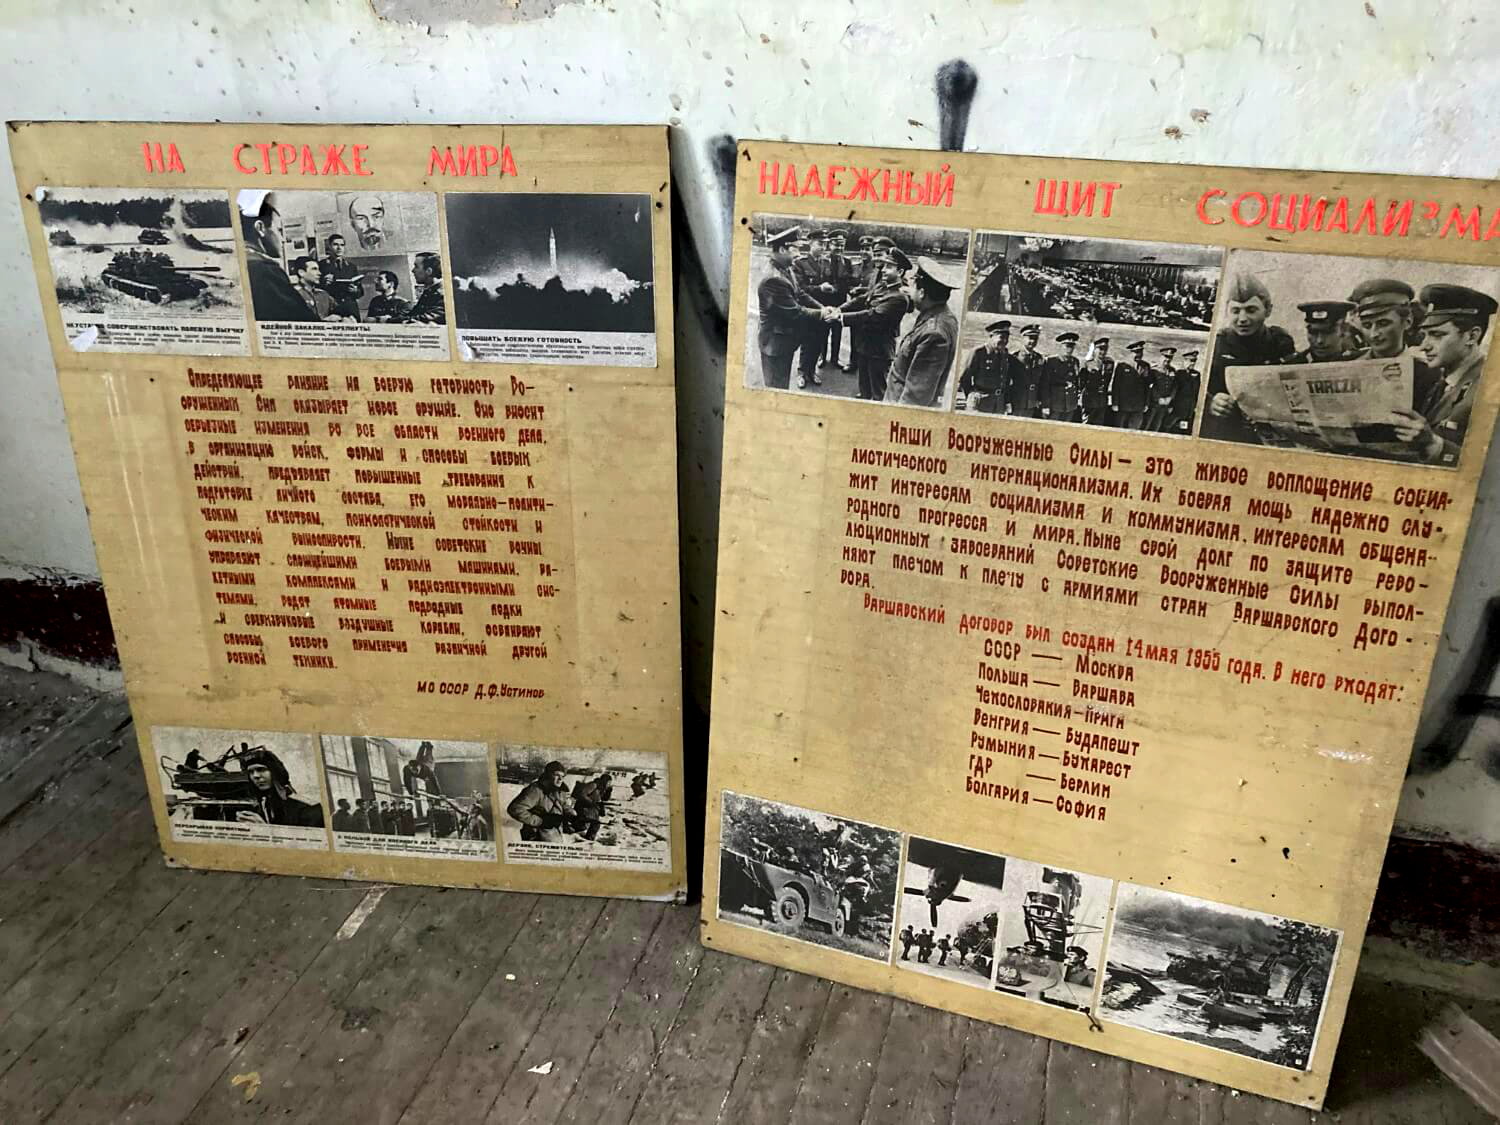 НА СТРАЖЕ МИРА
НЕУСТАННО СОВЕРШЕНСТВОВАТЬ ПОЛЕВУЮ ВЫУЧКУ
ИДЕЙНОЙ ЗАКАЛКЕ—КРЕПНУТЬ
ПОВЫШАТЬ БОЕВУЮ ГОТОВНОСТЬ
Определяющее влияние на боевую готовность Во-
оруженных Сил оказывает новое оружие. Оно вносит
серьезные изменения во все области военного дела,
в организацию войск, формы и способы боевых
действий, предъявляет повышенные требования к
подготовке личного состава, его морально-полити-
ческим качествам, психологической стойкости и
физической выносливости. Ныне советские воины
управляют сложнейшими боевыми машинами, ра-
кетными комплексами и радиоэлектронными сис-
темами, водят атомные подводные лодки
и сверхзвуковые воздушные корабли, осваивают
способы боевого применения различной другой
военной техники.
МО СССР Д.Ф.Устинов
ПЕРЕКРЫВАЯ НОРМАТИВЫ
С ПОЛЬЗОЙ ДЛЯ ВОЕННОГО ДЕЛА
ДЕРЗКО, СТРЕМИТЕЛЬНО
НАДЕЖНЫЙ ЩИТ СОЦИАЛИЗМА
TARCZA
Наши Вооруженные Силы — это живое воплощение социа-
листического интернационализма. Их боевая мощь надежно слу-
жит интересам социализма и коммунизма, интересам общена-
родного прогресса и мира. Ныне свой долг по защите рево-
люционных завоеваний Советские Вооруженные Силы выпол-
няют плечом к плечу с армиями стран Варшавского Дого-
вора.
Варшавский договор был создан 14 мая 1955 года. В него входят:
СССР — Москва
Польша — Варшава
Чехословакия — Прага
Венгрия — Будапешт
Румыния — Бухарест
ГДР — Берлин
Болгария — София